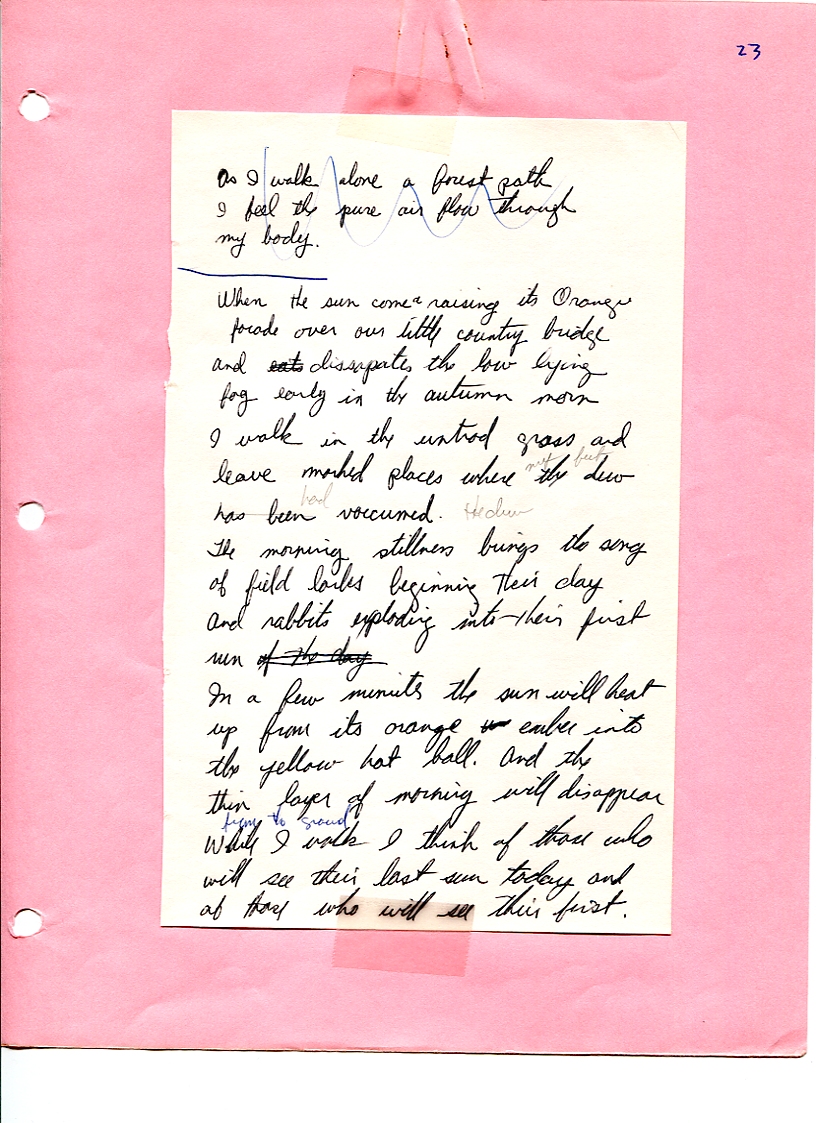 23
As I walk alone a forest path
I feel the pure air flow through
my body.
When the sun come raising its Orange
facade over our little country bridge
and eats dissapates the low lying
fog early in the autumn morn
I walk in the untrod grass and
leave marked places where the dew
my feet
has been vaccumed. the dew
had
The morning stillness brings the song
of field larks beginning their day
and rabbits exploding into their first
run of the day
In a few minuits the sun will heat
up from its orange ember into
the yellow hot ball. And the
thin layer of morning will disappear
to ground
While I walk I think of those who
will see their last sun today and
of those who will see their first.